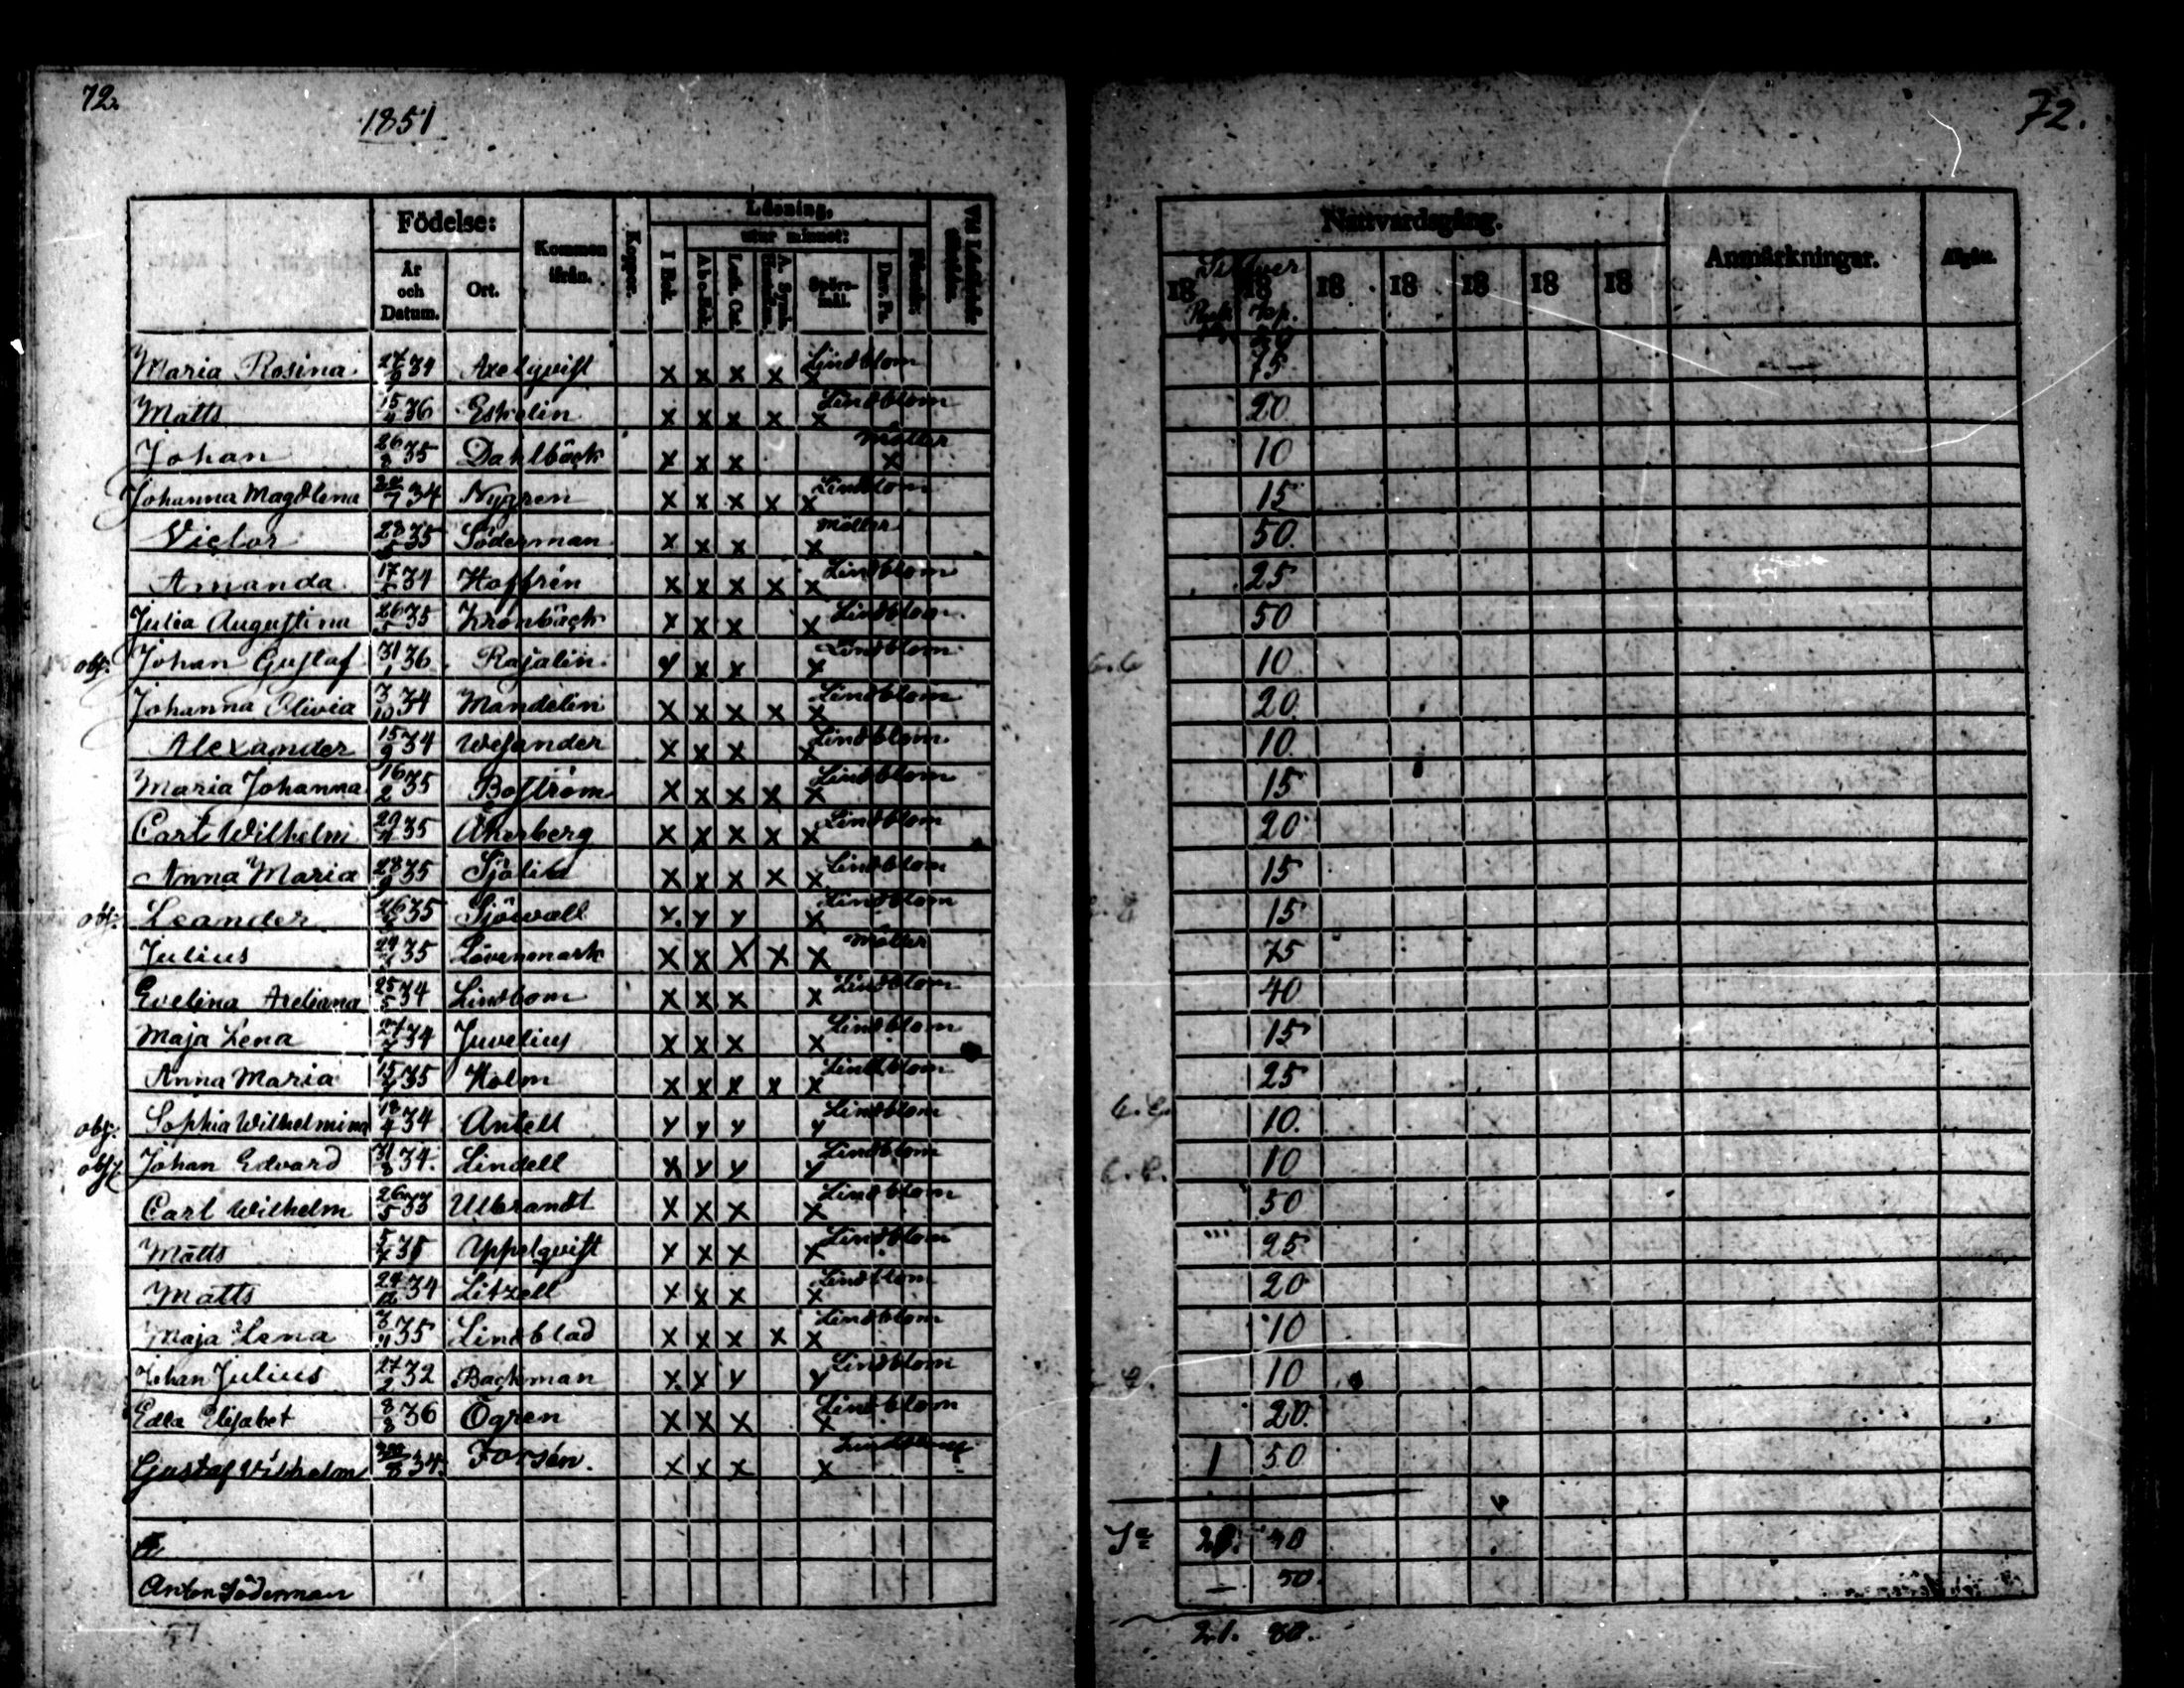 72.
1851
72.
Födelse:
År och Datum.
Ort.
Kommen ifrån.
Koppor.
Läsning,
utur minnet:
I Bok.
A b c-Bok.
Luth. Cat.
Spörs-mål.
Dav. Ps.
Nattvardsgång.
Anmärkningar.
Silfver
18 18 18 18 18 18 18
Kop.
Maria Rosina 27/9 34 Axelqvist x x x x x Lindblom 75
Matts 15/4 36 Eskelin x x x x x Lindblom 20
Johan 26/8 35 Dahlbäck x x x x Möller 10
Johanna Magdlena 22/7 34 Nygren x x x x x Lindblom 15
Victor 28 35 Söderman x x x x Möller 50
Amanda 17 34 Hoffrén x x x x x Lindblom 25
Julia Augustina 26 35 Kronbäck x x x x Lindblom 50
obs. Johan Gustaf 31/1 36 Rajalin y x x x Lindblom 10
Johanna Olivia 3/10 34 Mandelin x x x x x Lindblom 20
Alexander 15/9 34 Wesander x x x x Lindblom 10
Maria Johanna 16/2 35 Boström x x x x x Lindblom 15
Carl Wilhelm 29 35 Åkerberg x x x x x Lindblom 20
Anna Maria 28/9 35 x x x x x Lindblom 15
obs. Leander 26 35 Sjöwall y y y x Lindblom 15
Julius 24 35 Lövenmark x x x x x Möller 75
Evelina 25/5 34 Lindbom x x x x Lindblom 40
Maja Lena 27/7 34 Juvelius x x x x Lindblom 15
Anna Maria 15 35 Holm x x x x x Lindblom 25
obs. Sophia Wilhelmina 18/4 34 Antell y y y y Lindblom 10
obs. Johan Edvard 31/8 34 Lindell x y y y Lindblom 10
Carl Wilhelm 26/5 33 Ulbrandt x x x x Lindblom 50
Matts 5 35 Appelqvist x x x x Lindblom 25
Matts 24/12 34 Litzell x x x x Lindblom 20
Maja Lena 3/4 35 Lindblad x x x x x Lindblom 10
Johan Julius 27/2 32 Backman x x y y Lindblom 10
Edla Elisabet 8/8 36 Ögren x x x x Lindblom 20
Gustaf Vilhelm 34. Forsén. x x x x 1 50
Sa 20. 40
Anton Söderman — 50.
21.